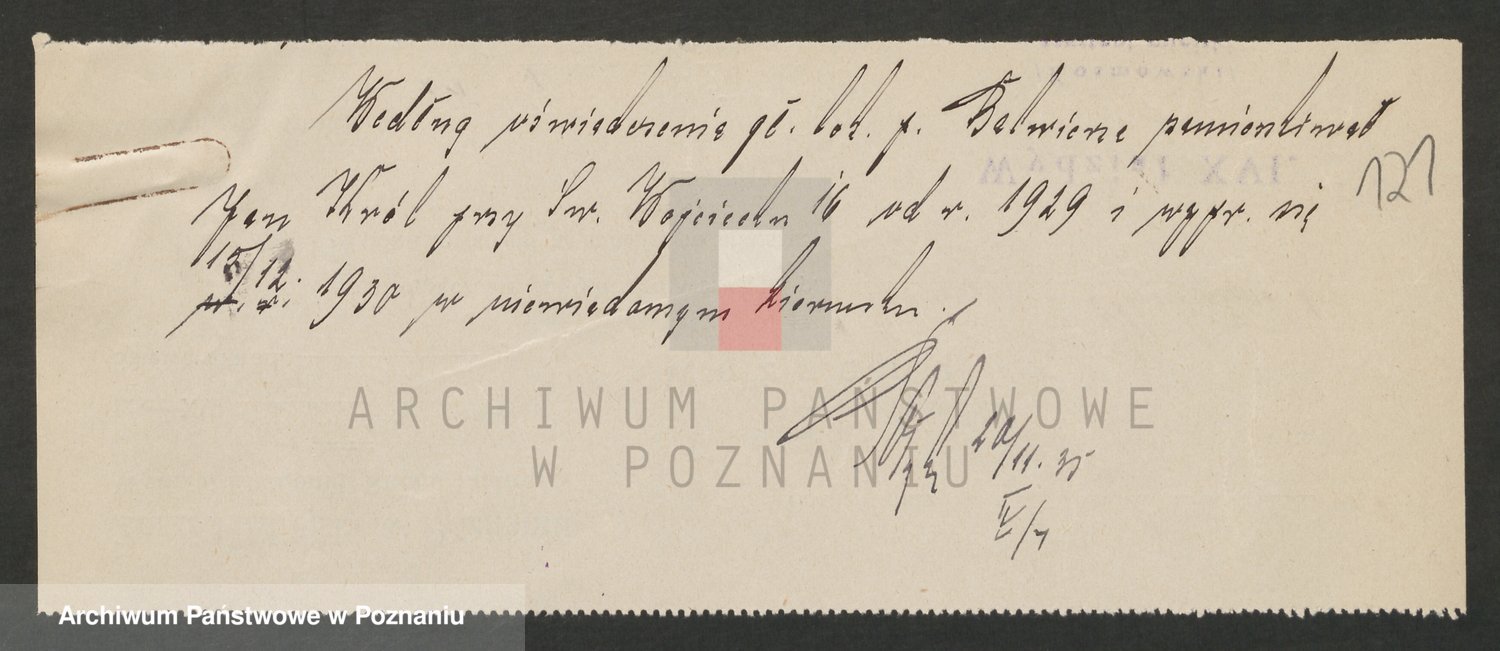 Według oświadczenia gł. lok. p. Balwierza zamieszkiwał
Jan Król przy Św. Wojciechu 16 od r. 1929 i wypr. się
15/12. 1930 w niewiadomym kierunku.
121
20/11. 35
IV/7
ARCHIWUM PAŃSTWOWE
W POZNANIU
Archiwum Państwowe w Poznaniu